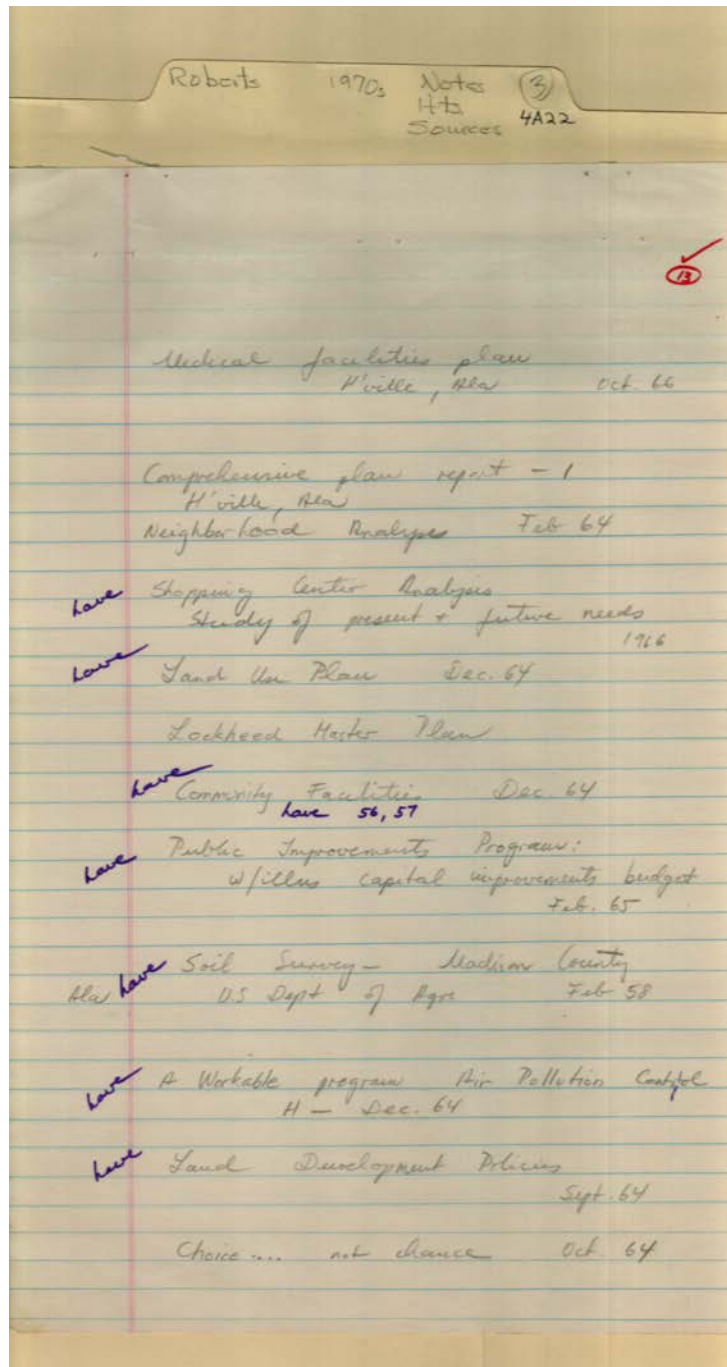 Roberts 1970s Notes 3
Hts 4A22
Sources
13
Medical facilities plan
H'ville, Ala Oct. 66
Comprehensive plan report - 1
H'ville, Ala
Neighborhood Analyses Feb 64
have Shopping Center Analysis
Study of present + future needs
1966
have Land Use Plan Dec. 64
Lockheed Master Plan
have Community Facilities Dec 64
have 56, 57
have Public Improvements Program:
w/illus capital improvements budget
Feb. 65
have Soil Survey - Madison County
Ala U.S Dept of Agre Feb 58
have A Workable program Air Pollution Control
H - Dec. 64
have Land Development Policies
Sept. 64
Choice .... not chance Oct 64